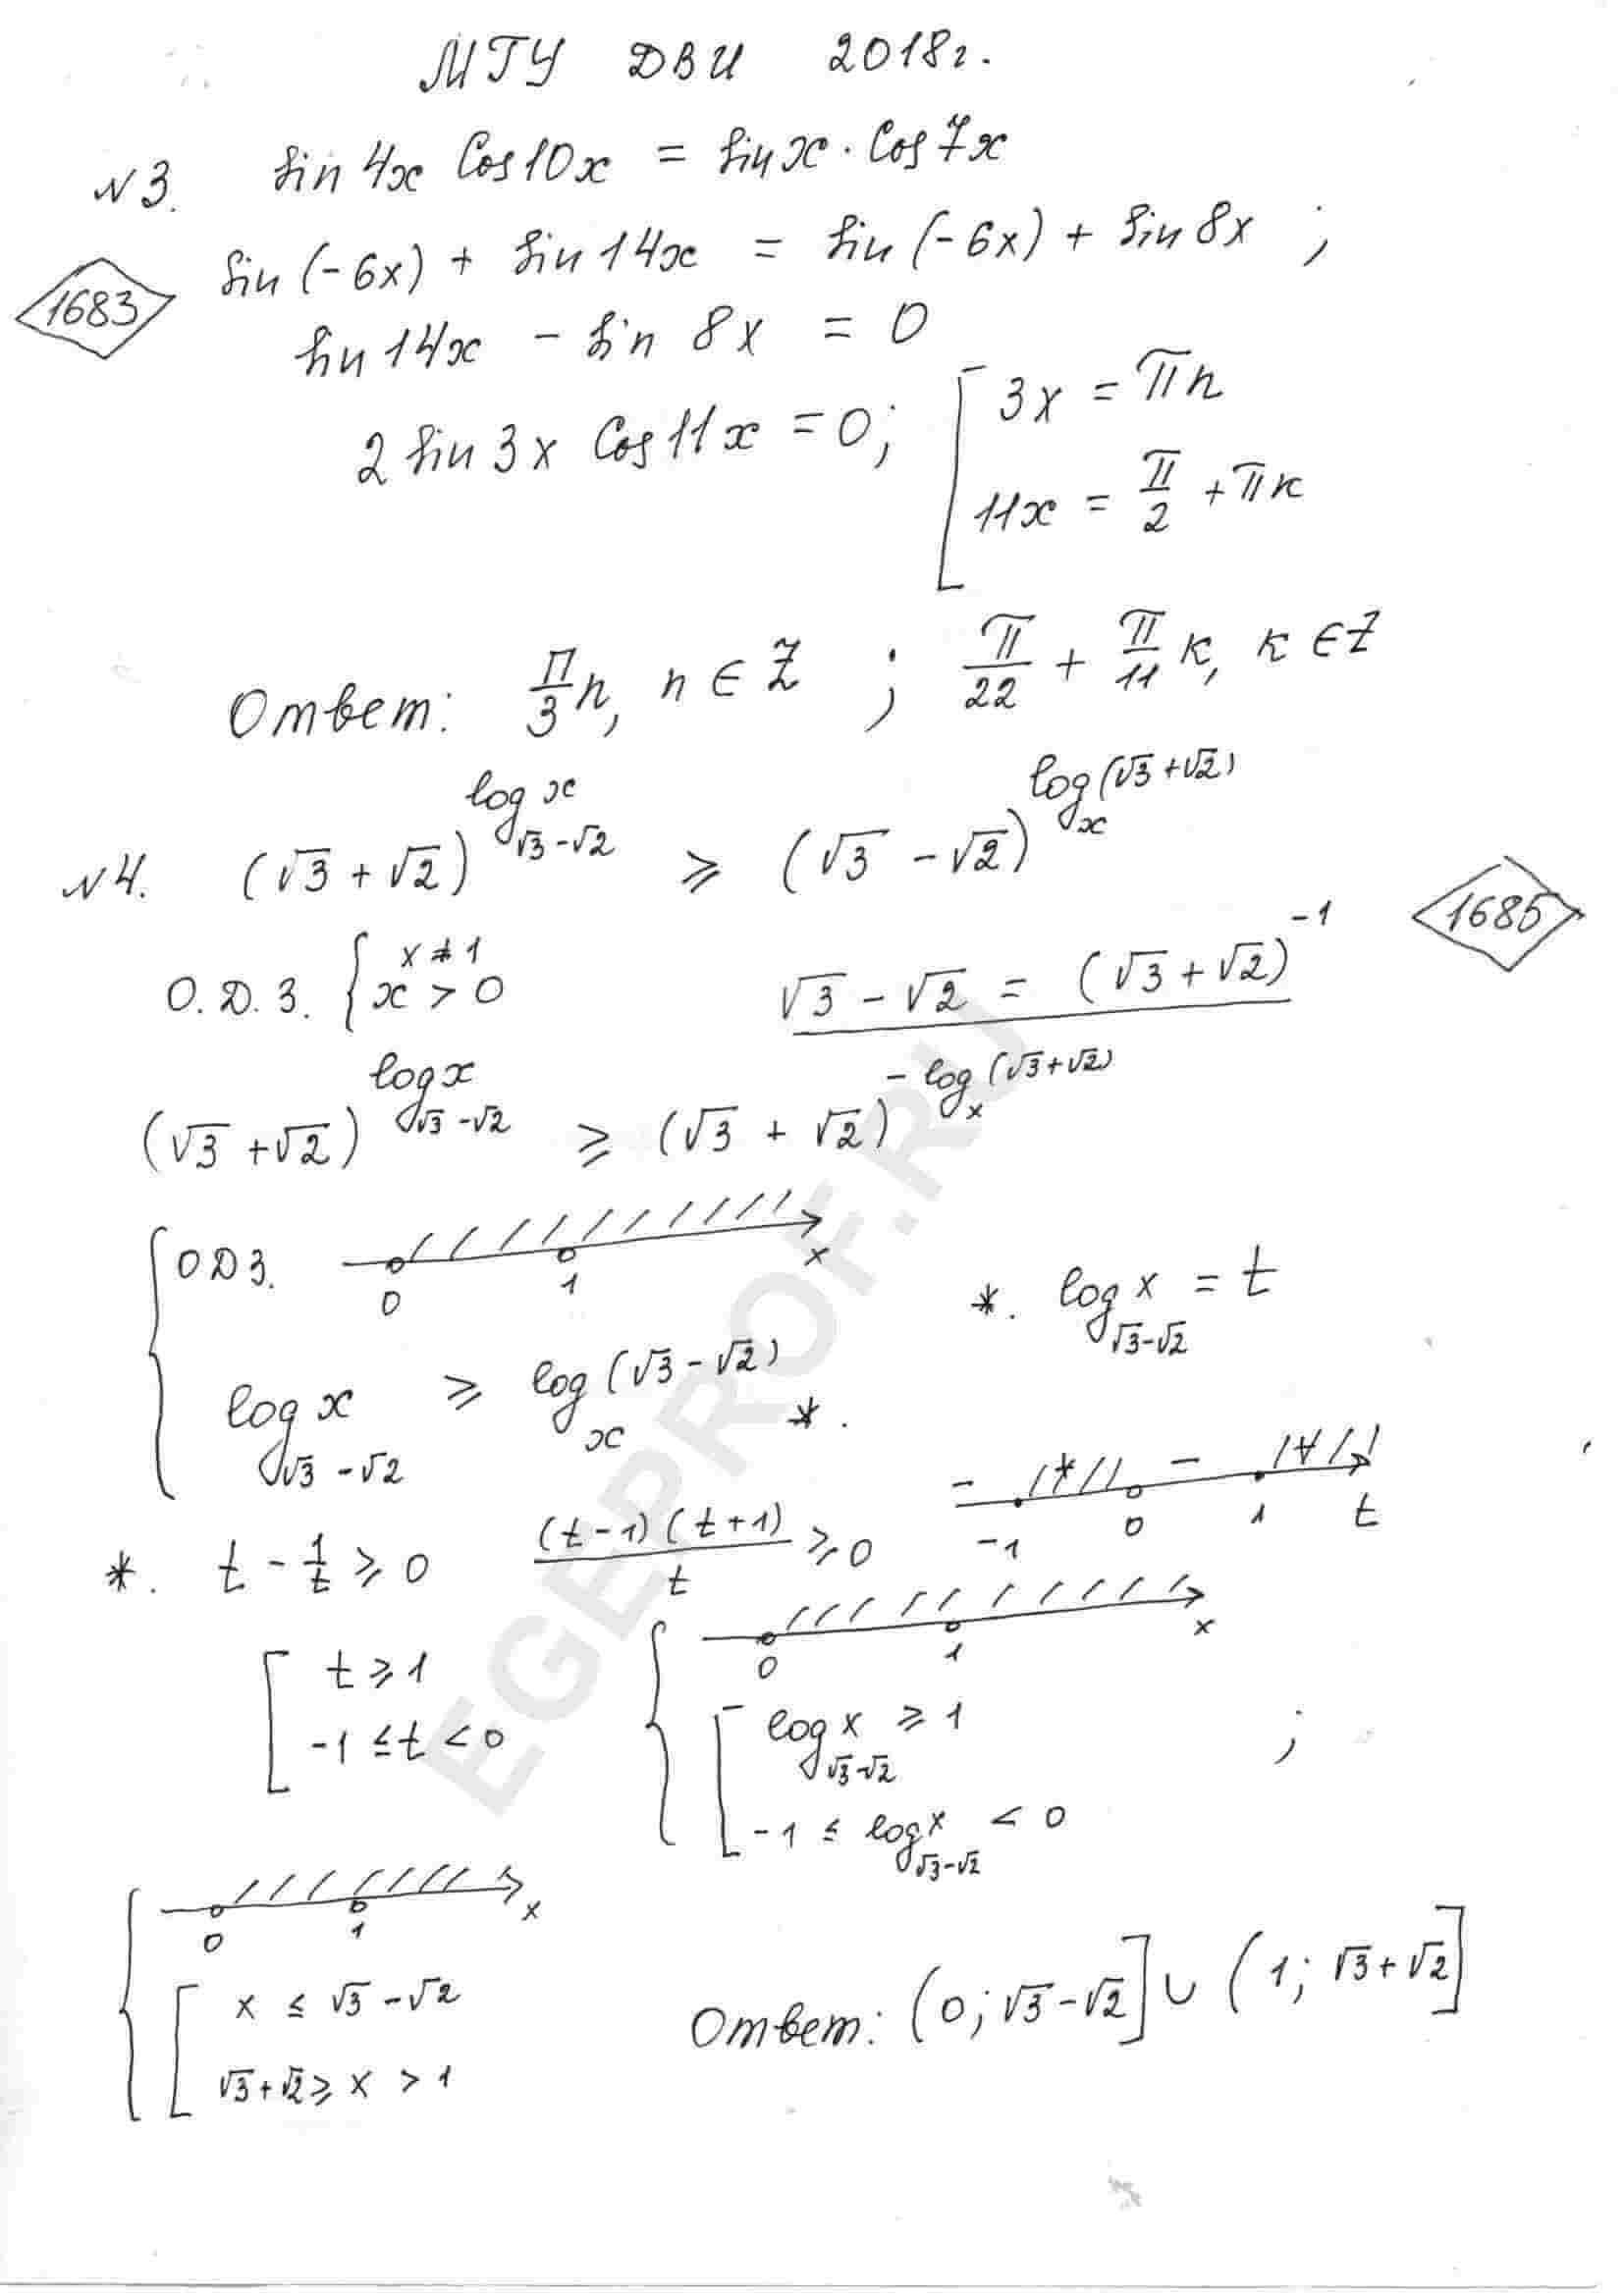 МГУ ДВИ 2018г.
№3. sin 4x cos 10x = sin x · cos 7x
1683
sin(-6x) + sin 14x = sin(-6x) + sin 8x ;
sin 14x - sin 8x = 0
2 sin 3x cos 11x = 0; [ 3x = πn
11x = π/2 + πк
Ответ: π/3 n, n ∈ Z ; π/22 + π/11 к, к ∈ Z
№4. (√3 + √2)^(log_(√3-√2) x) ⩾ (√3 - √2)^(log_x (√3+√2))
1685
О.Д.З. { x ≠ 1
x > 0
√3 - √2 = (√3 + √2)^(-1)
(√3 + √2)^(log_(√3-√2) x) ⩾ (√3 + √2)^(-log_x (√3+√2))
{ ОДЗ. 0 1 x
*. log_(√3-√2) x = t
log_(√3-√2) x ⩾ log_x (√3-√2) *.
- + - + -1 0 1 t
*. t - 1/t ⩾ 0 (t-1)(t+1)/t ⩾ 0
0 1 x
[ t ⩾ 1
-1 ≤ t < 0
{ [ log_(√3-√2) x ⩾ 1 ;
-1 ≤ log_(√3-√2) x < 0
0 1 x
{ [ x ≤ √3 - √2
√3+√2 ⩾ x > 1
Ответ: (0; √3-√2] ∪ (1; √3+√2]
EGEPROF.RU